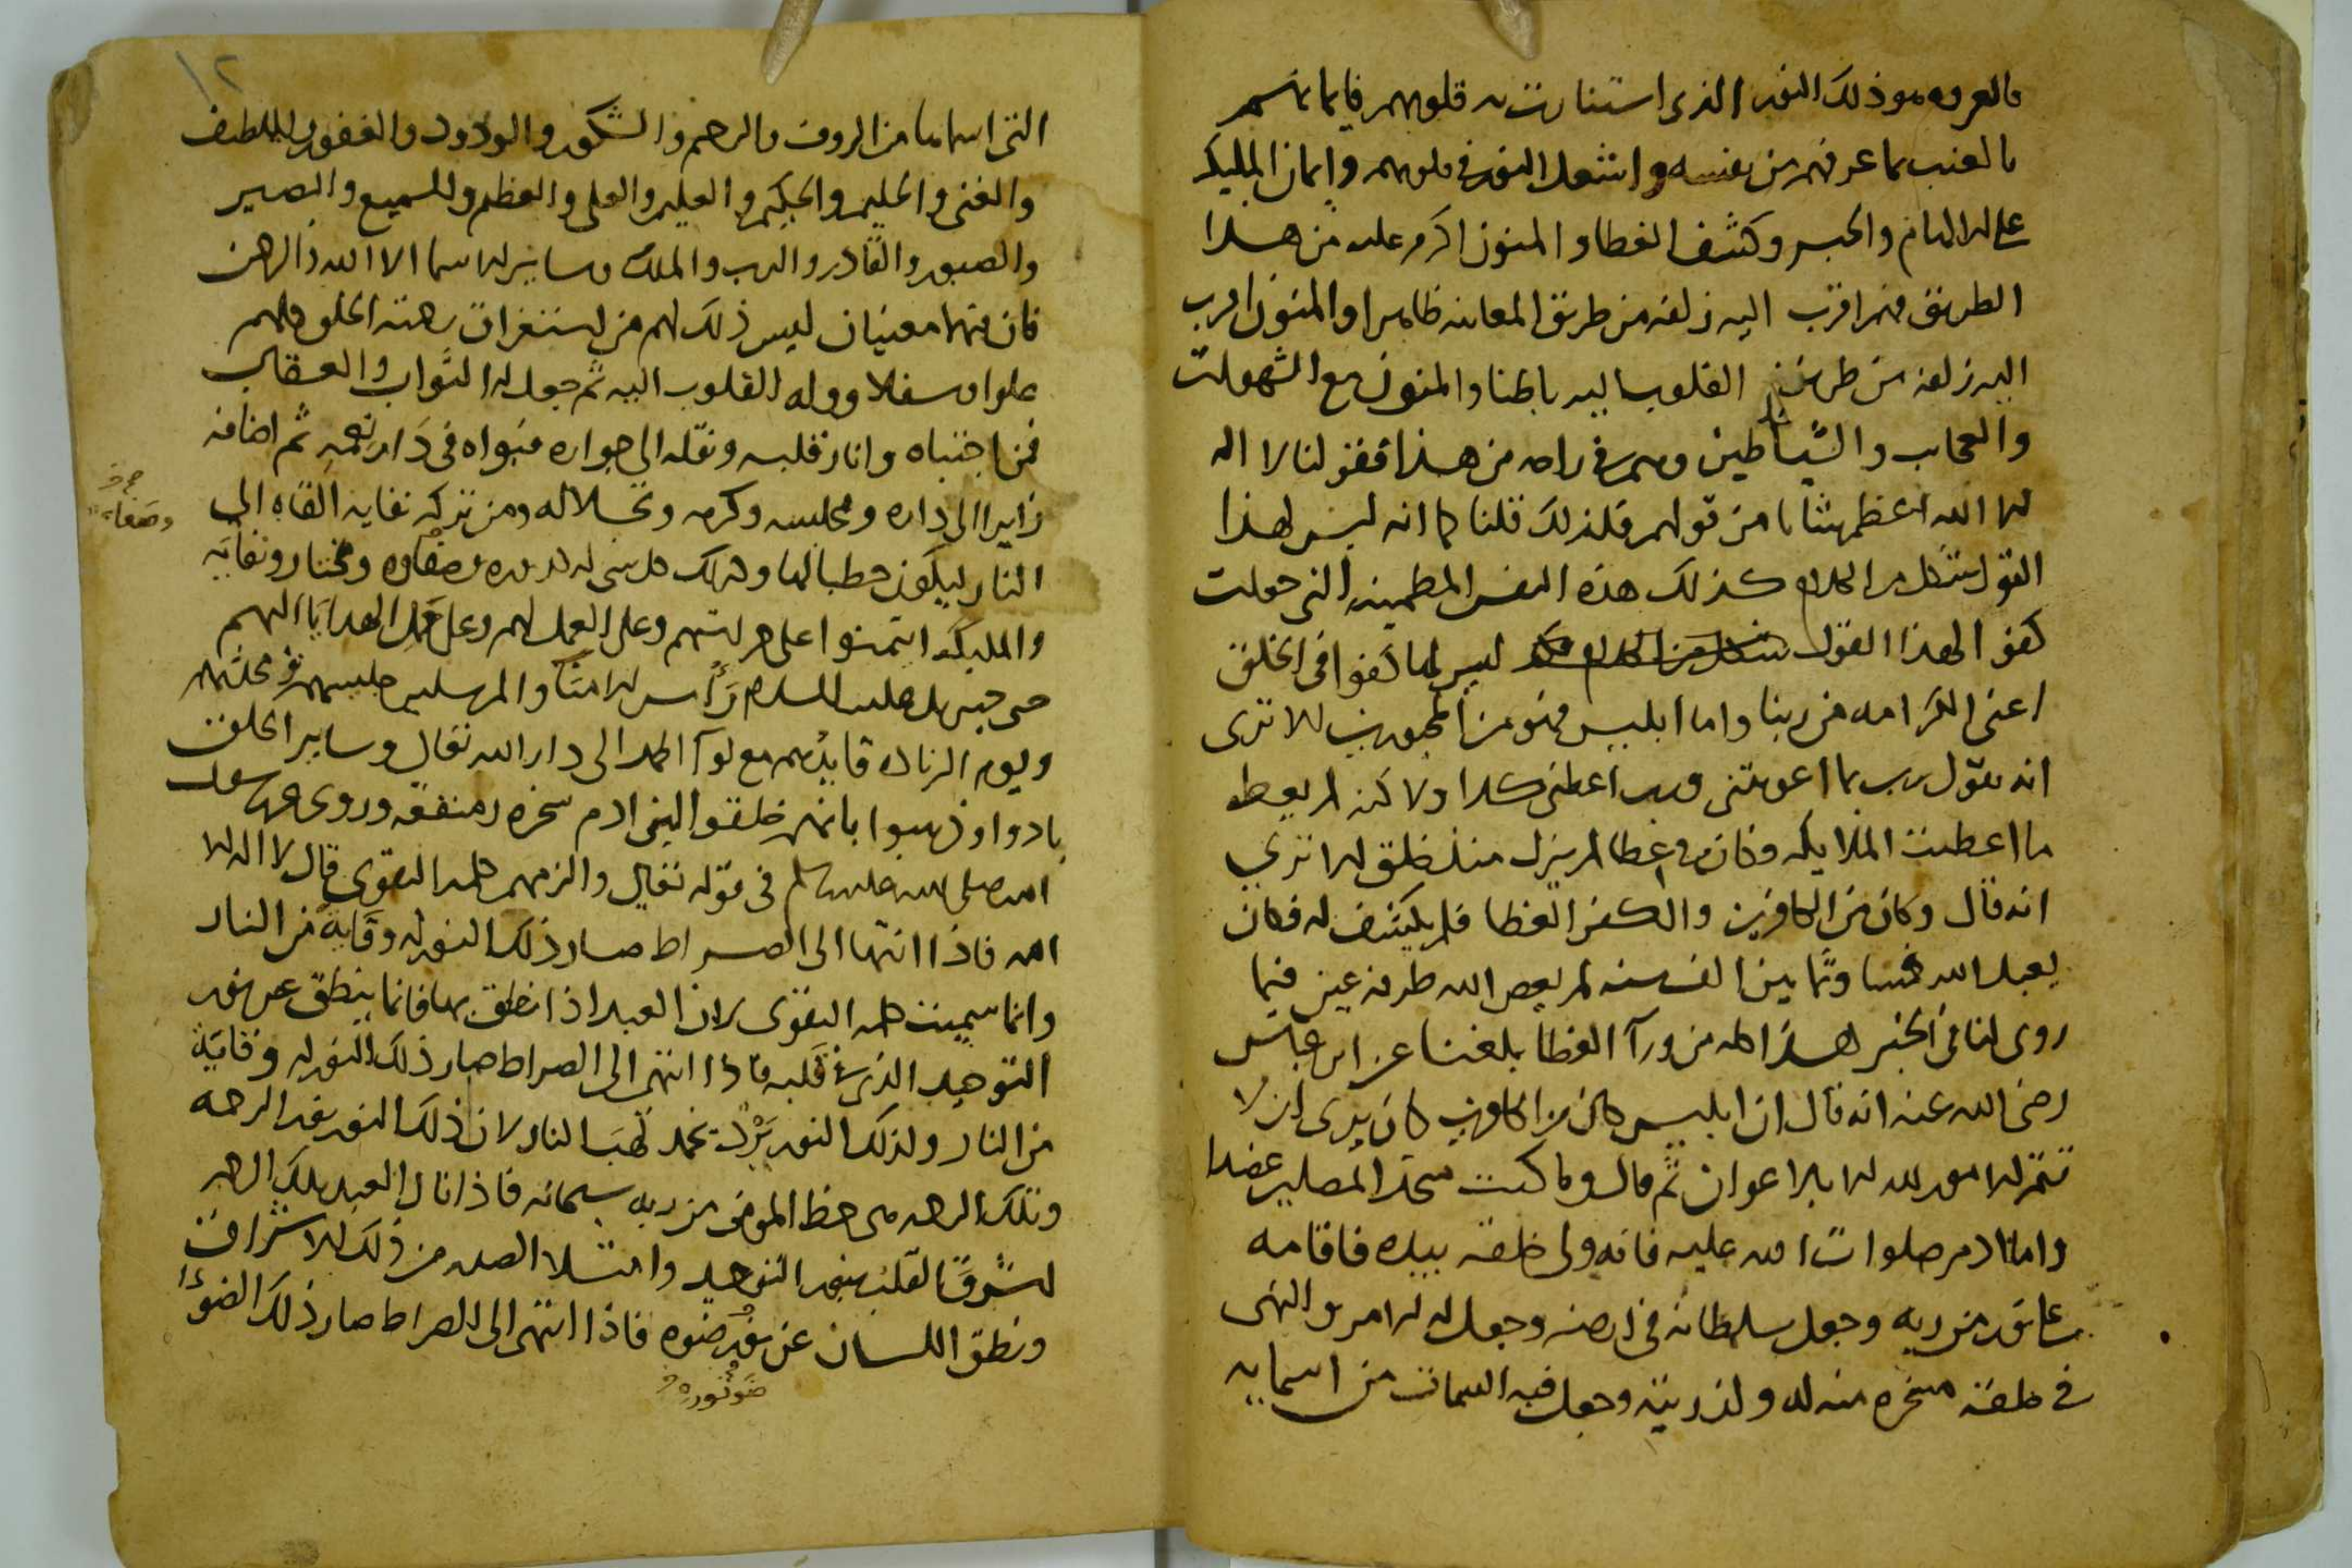 بالعروه هو ذلك النور الذى استنارت به قلوبهم فايمانهم
بالغيب بما عرفهم من نفسه واشعل النور فى قلوبهم وايمان المليكه
على الالهام والخبر وكشف الغطا والمومنون اكرم عليه من هذا
الطريق فهم اقرب اليه زلفه من طريق المعاينه ظاهرا والمومنون اقرب
اليه زلفه من طريق القلوب اليه باطنا والمومنون مع الشهوات
والحجاب والشياطين وهم فى راحه من هذا فقولنا لا اله
الا الله اعظم شانا من قولهم فلذلك قلنا كما انه ليس لهذا
القول شكل من الكلام كذلك هذه النفس المطمينه التى جعلت
كفو لهذا القول ليس لها كفوا فى الخلق
اعنى الكرامه من ربنا واما ابليس فهو من المحجوبين الا ترى
انه يقول رب بما اغويتنى ورب اعطنى كذا ولاكنه لم يعط
ما اعطيت الملايكه وكان فى غطا لم يزل منذ خلق الا ترى
انه قال وكان من الكافرين والكفر الغطا فلم يكشف له فكان
يعبد الله خمسا وثمانين الف سنه لم يعص الله طرفة عين فيما
روى لنا فى الخبر هذا كله من ورآ الغطا بلغنا عن ابن عباس
رضى الله عنه انه قال ان ابليس كان من الكافرين كان يرى ان لا
تتم الامور لله الا بالاعوان ثم قال وما كنت متخذ المضلين عضدا
واما ادم صلوات الله عليه فانه ولى خلقه بيده فاقامه
على نور من ربه وجعل سلطانه فى ارضه وجعل له الامر والنهى
فى خلقه مسخره منه له ولذريته وجعل فيه السمات من اسمايه
١٢
التى اسماها من الروف والرحيم والشكور والودود والغفور واللطيف
والغنى والحليم والحكيم والعليم والعلى والعظيم والسميع والبصير
والصبور والقادر والرب والملك وساير الاسما الا الله والرحمن
فان فيهما معنيان ليس ذلك لهم من استغراق رحمته الخلق كلهم
علوا وسفلا ووله القلوب اليه ثم جعل له الثواب والعقاب
فمن اجتباه وانار قلبه ونقله الى جواره فبواه فى دار نعيمه ثم اضافه
زايرا الى داره ومجلسه وكرمه ومن تركه نفايه القاه الى
النار ليكون حطبا لها وصفاوه ومختار ونفايه
والمليكه ايتمنوا على حراستهم وعلى العمل لهم وعلى حمل الهدايا اليهم
حتى جبريل عليه السلام راس الامنا والمرسلين جليسهم فى محلتهم
ويوم الزياره قايدهم مع لوآ الحمد الى دار الله تعالى وساير الخلق
بادوا وذهبوا بانهم خلقوا لبنى ادم سخره ومنفعه وروى عن رسول
الله صلى الله عليه وسلم فى قوله تعالى والزمهم كلمه التقوى قال لا اله الا
الله فاذا انتها الى الصراط صار ذلك النور له وقاية من النار
وانما سميت كلمه التقوى لان العبد اذا نطق بها فانما ينطق عن نور
التوحيد الذى فى قلبه فاذا انتهى الى الصراط صار ذلك النور له وقايه
من النار ولذلك النور برد يخمد لهب النار لان ذلك النور نور الرحمه
وتلك الرحمه هى حظ المومن من ربه سبحانه فاذا نال العبد تلك الرحمه
اشرق القلب بنور التوحيد وامتلا الصدر من ذلك الاشراق
ونطق اللسان عن نور ضوه فاذا انتهى الى الصراط صار ذلك الضوء
ضو نوره
وصفاه